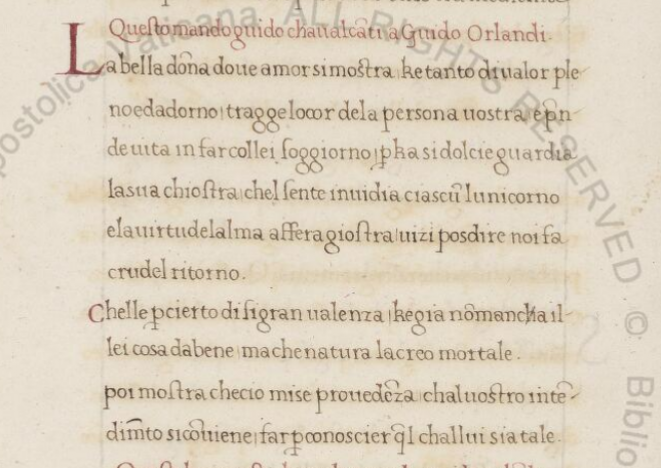 Questo mando guido chaualcāti a Guido Orlandi.
La bella dōna doue amor si mostra ke tanto di ualor ple
no ed adorno tragge lo cor dela persona uostra e pn
de uita in far collei soggiorno pka si dolcie guardia
la sua chiostra chel sente inuidia ciascū lunicorno
e la uirtu del alma affera giostra uizi pos dire noi fa
crudel ritorno.
Chelle pcierto di si gran ualenza ke gia nō mancha il
lei cosa da bene ma che natura la creo mortale.
poi mostra che cio mise prouedēza chal uostro intē
dimto si cōuiene far pconoscier ql challui sia tale.
Apostolica Vaticana ALL RIGHTS RESERVED © Biblio